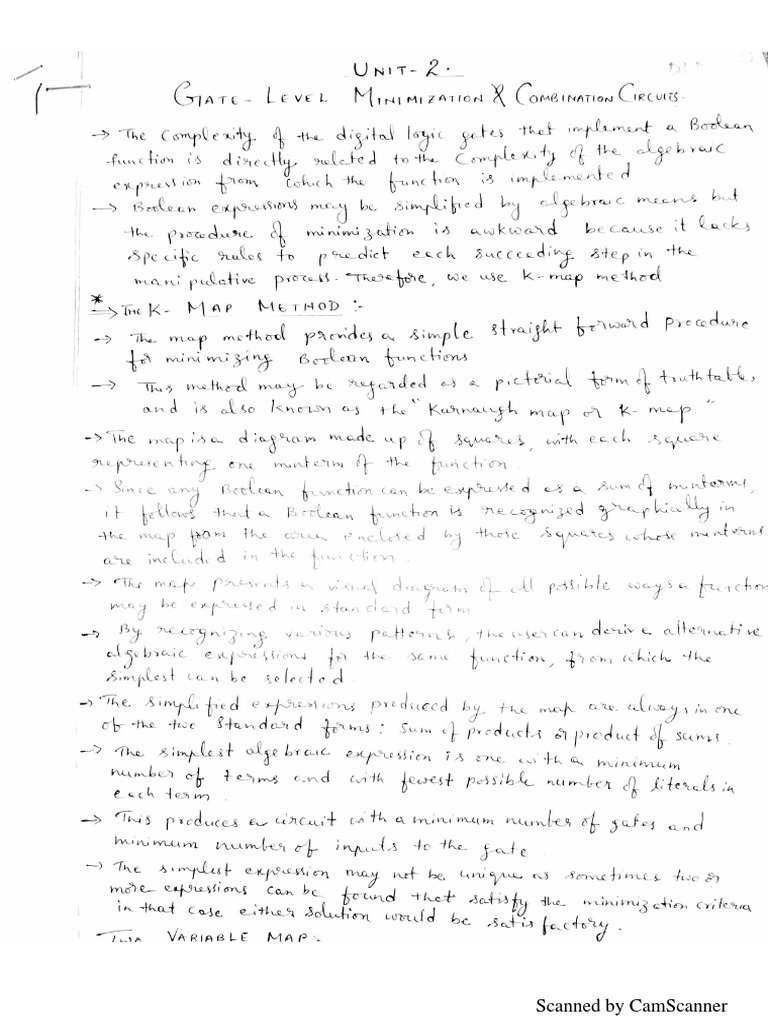 UNIT-2.
GATE-LEVEL MINIMIZATION & COMBINATION CIRCUITS.
→ The complexity of the digital logic gates that implement a Boolean
function is directly related to the complexity of the algebraic
expression from which the function is implemented
→ Boolean expressions may be simplified by algebraic means but
the procedure of minimization is awkward because it lacks
specific rules to predict each succeeding step in the
manipulative process. Therefore, we use K-map method.
* → THE K-MAP METHOD :-
→ The map method provides a simple straight forward procedure
for minimizing Boolean functions
→ This method may be regarded as a pictorial form of truth table,
and is also known as the "Karnaugh map or K-map."
→ The map is a diagram made up of squares, with each square
representing one minterm of the function.
→ Since any Boolean function can be expressed as a sum of minterms,
it follows that a Boolean function is recognized graphically in
the map from the area enclosed by those squares whose minterms
are included in the function.
→ The map presents a visual diagram of all possible ways a function
may be expressed in standard form
→ By recognizing various patterns, the user can derive alternative
algebraic expressions for the same function, from which the
simplest can be selected.
→ The simplified expressions produced by the map are always in one
of the two standard forms: sum of products or product of sums.
→ The simplest algebraic expression is one with a minimum
number of terms and with fewest possible number of literals in
each term.
→ This produces a circuit with a minimum number of gates and
minimum number of inputs to the gate.
→ The simplest expression may not be unique as sometimes two or
more expressions can be found that satisfy the minimization criteria
in that case either solution would be satisfactory.
TWO VARIABLE MAP:-
Scanned by CamScanner